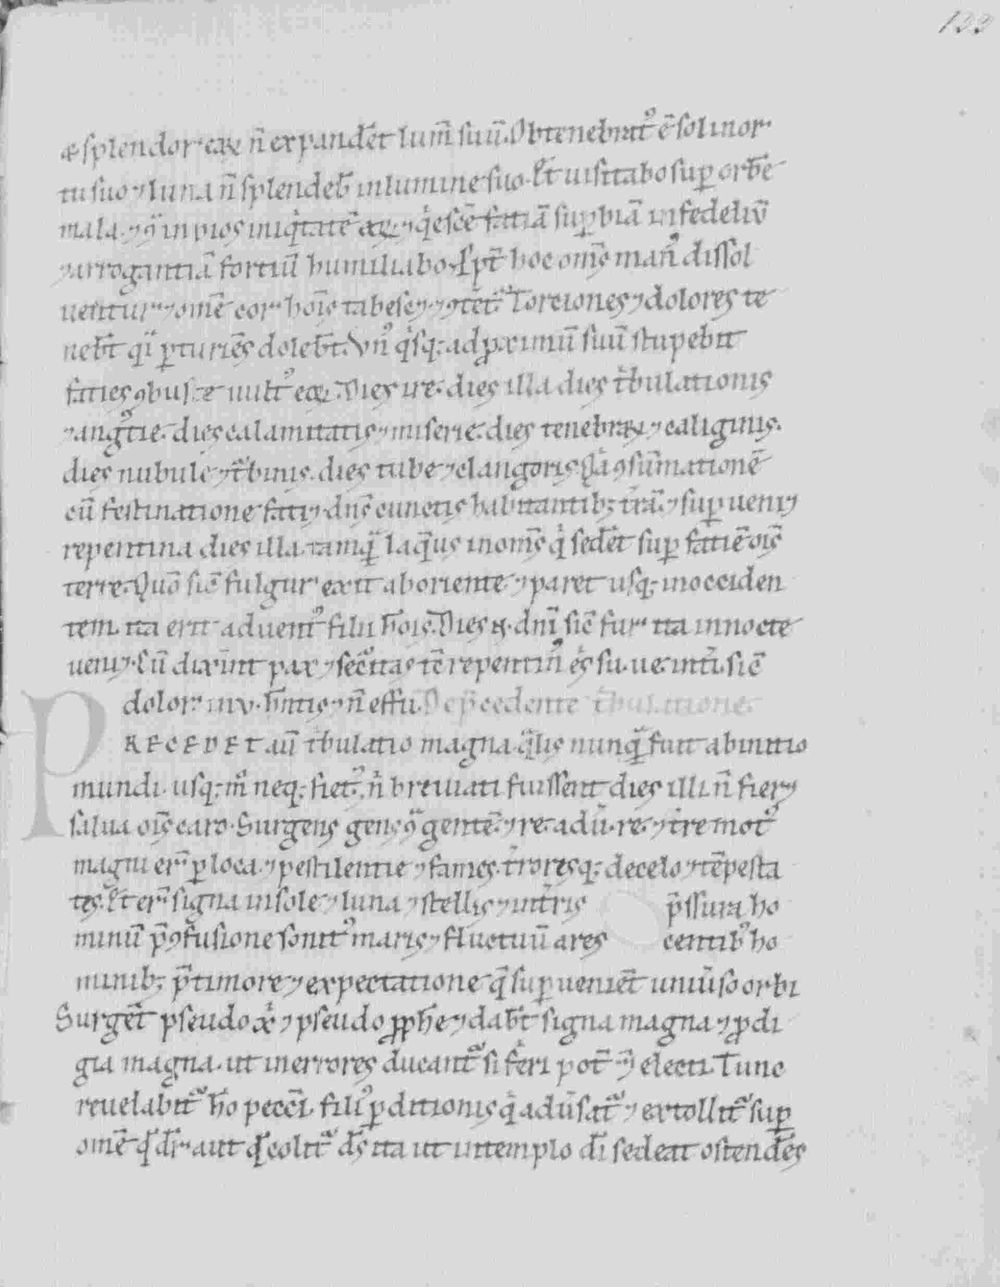 122
& splendor eaꝝ n̄ expander̄t lum̄ suū. Obtenebrat᷒ ē sol in or
tu suo ⁊ luna n̄ splendeb̄ in lumine suo. Et uisitabo sup orbē
mala. ⁊ ɔ̄ inpios iniq̇tatē eaꝝ. ⁊ q̇escē fatiā supbiā infedeliū
⁊ arrogantiā fortiū humiliabo. ꝓpt̄ hoc om̄s man᷒ dissol
uentur. ⁊ omē cor hoīs tabesc⁊ ⁊ ɔtēt᷑. Torciones ⁊ dolores te
neb̄t qͣi pturiēs doleb̄t. Vn᷒ q̇sq; ad ꝓximū suū stupebit
faties ɔbuste uult᷒ eoꝝ. Dies ire. dies illa dies tͥbulationis
⁊ ang᷒tie. dies calamitatis ⁊ miserie. dies tenebraꝝ ⁊ caliginis.
dies nubule ⁊ tᷣbinis. dies tube ⁊ clangoris. Qͣ ɔsūmationē
cū festinatione fati⁊ dn̄s cunctis habitantib; tr̄ā. ⁊ supueni⁊
repentina dies illa. tamqͣ̄ laq̄us in om̄s q̇ seder̄t sup fatiē oīs
terre. Quō sic̄ fulgur exit ab oriente ⁊ paret usq; in occiden
tem. ita erit advent᷒ filii hoīs. Dies ꝝ. dn̄i sic̄ fur ita in nocte
veni⁊. Cū dixer̄int pax ⁊ secͣ̄itas tc̄ repentin᷒ eis su. ue. intᷓi. sic̄
dolor in v. hn̄tis ⁊ n̄ effu. De p̄cedente tͥbulatione.
PRECEDET aū tͥbulatio magna. q̄lis nunqͣ̄ fuit ab initio
mundi. usq; mͦ neq; fiet. n᷒ breuiati fuissent dies illi. n̄ fier⁊
salua oīs caro. Surgens gens ɔͣ gentē. ⁊ re. adu. re. ⁊ t̄re mot᷒
magni er̄t p loca. ⁊ pestilentie ⁊ fames. t̄roresq; de celo ⁊ tēpesta
tes. Et er̄t signa in sole ⁊ luna ⁊ stellis ⁊ in t̄ris p̄ssura ho
minū p̄ ɔfusione sonit᷒ maris ⁊ fluctuū ares centib᷒ ho
minib; p̄ timore ⁊ expectatione q̄ supueniēt uniūso orbi
Surgēt pseudo xͥ ⁊ pseudo ꝓphe ⁊ dab̄t signa magna ⁊ ꝓdi
gia magna. ut in errores ducant᷑ si fͥeri pot̄ ēͣ electi. Tunc
reuelabit᷑ hō peccͣi. fili᷒ pditionis q̇ adūsat᷑ ⁊ extollit᷑ sup
omē qd̄ dr̄ aut qd̄ colit᷑ ds̄ ita ut in templo dī sedeat ostendēs